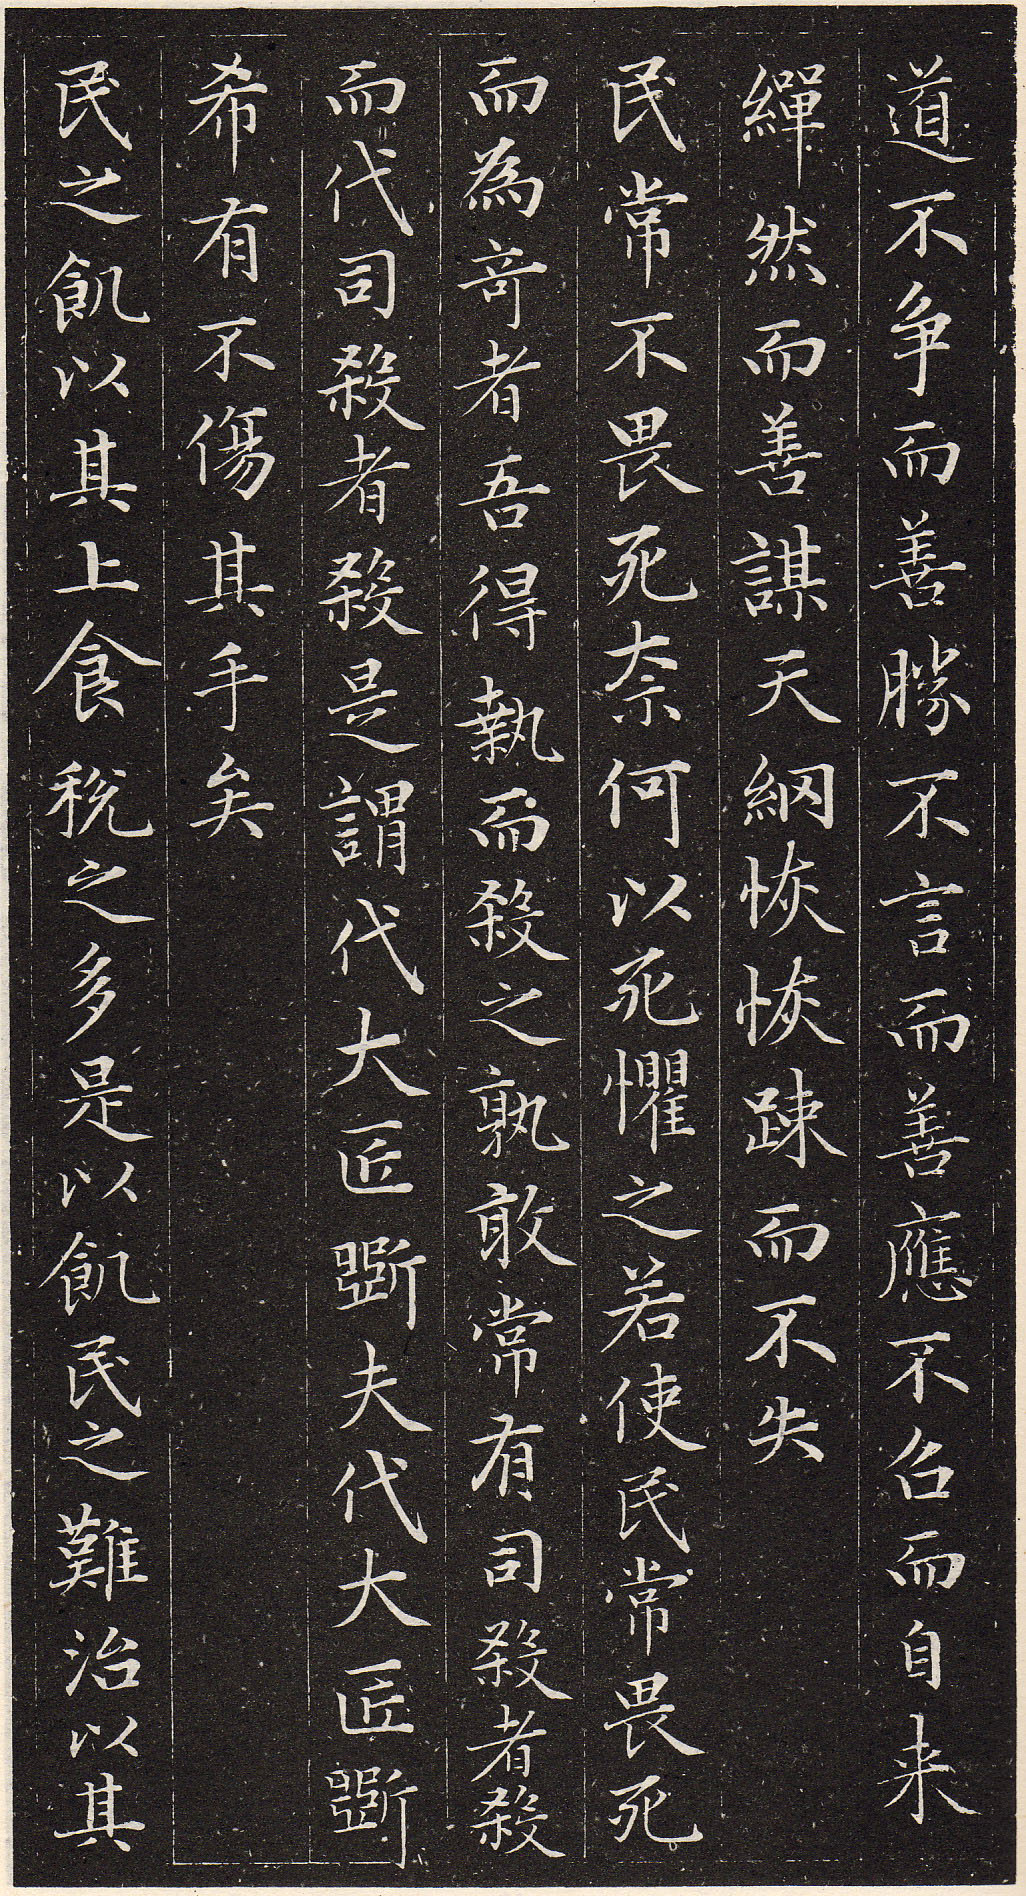 道不争而善勝不言而善應不召而自来
繟然而善謀天網恢恢踈而不失
民常不畏死柰何以死懼之若使民常畏死
而為竒者吾得執而殺之孰敢常有司殺者殺
而代司殺者殺是謂代大匠斵夫代大匠斵
希有不傷其手矣
民之飢以其上食稅之多是以飢民之難治以其